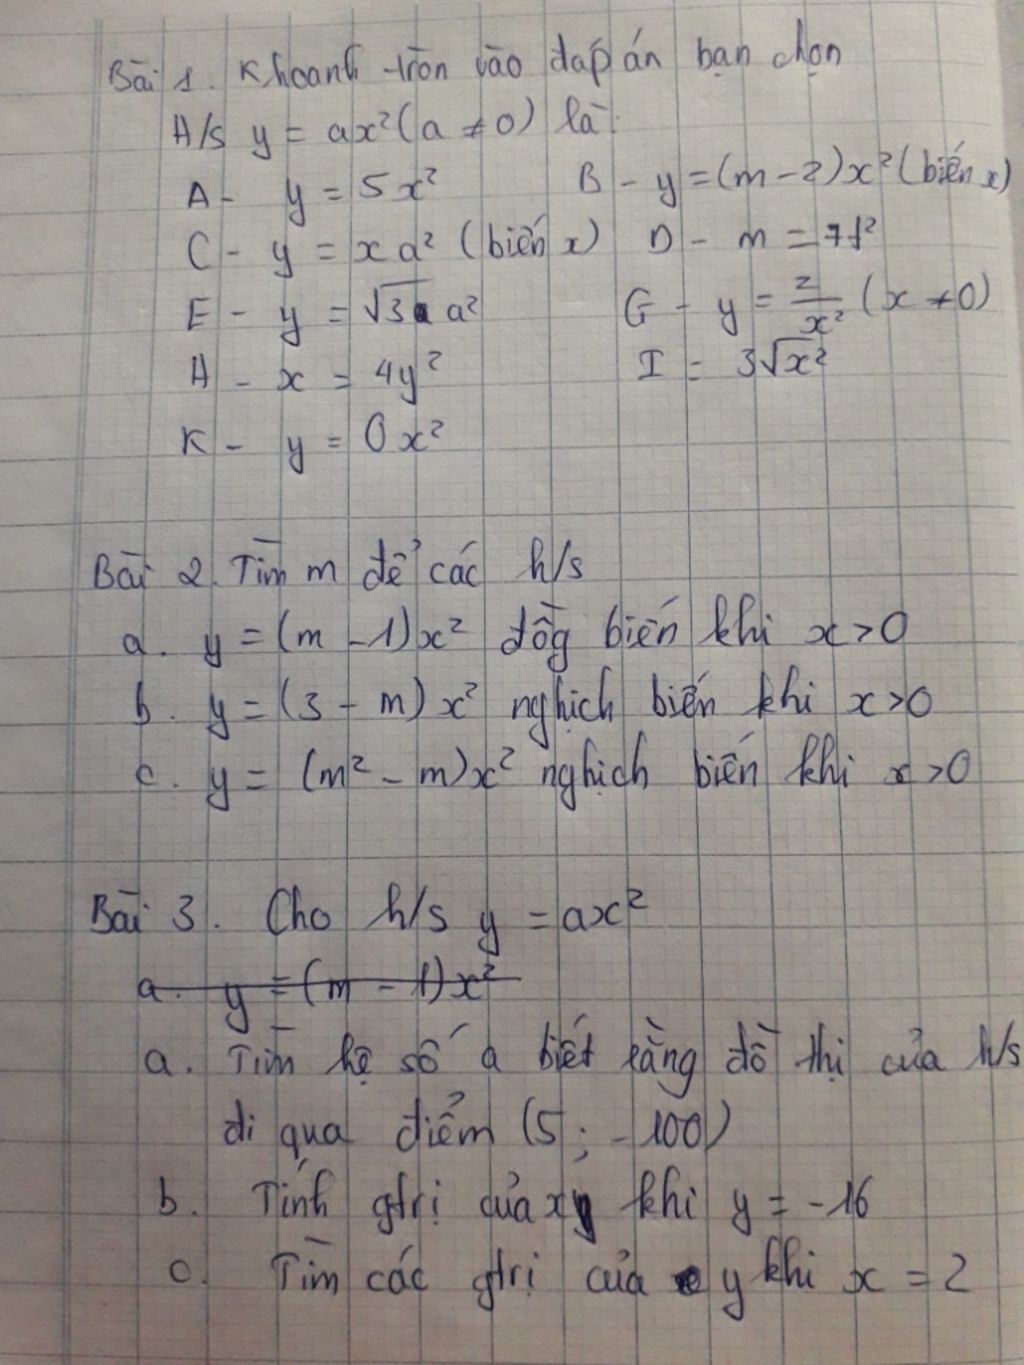 Bài 1. Khoanh tròn vào đáp án bạn chọn
H/s y = ax² (a ≠ 0) là:
A - y = 5x² B - y = (m - 2)x² (biến x)
C - y = xa² (biến x) D - m = 7t²
E - y = √3 a² G - y = 2/x² (x ≠ 0)
H - x = 4y² I = 3√x²
K - y = 0x²
Bài 2. Tìm m để các h/s
a. y = (m - 1)x² đồg biến khi x > 0
b. y = (3 - m)x² nghịch biến khi x > 0
c. y = (m² - m)x² nghịch biến khi x > 0
Bài 3. Cho h/s y = ax²
a. y = (m - 1)x²
a. Tìm hệ số a biết rằng đồ thị của h/s
đi qua điểm (5; -100)
b. Tính gtrị của x khi y = -16
c. Tìm các gtrị của y khi x = 2